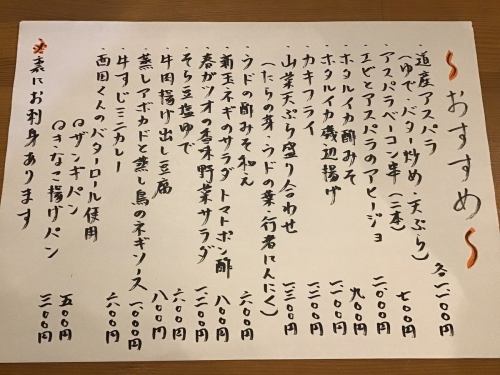 〜おすすめ〜
・道産アスパラ
(ゆで・バター炒め・天ぷら) 各一、一〇〇円
・アスパラベーコン串(二本) 七〇〇円
・エビとアスパラのアヒージョ 一、二〇〇円
・ホタルイカ酢みそ 九〇〇円
・ホタルイカ磯辺揚げ 一、一〇〇円
・カキフライ 一、二〇〇円
・山菜天ぷら盛り合わせ 一、三〇〇円
(たらの芽・ウドの葉・行者にんにく)
・ウドの酢みそ和え 六〇〇円
・新玉ネギのサラダトマトポン酢 八〇〇円
・春ガツオの香味野菜サラダ 一、二〇〇円
・そら豆塩ゆで 六〇〇円
・牛肉揚げ出し豆腐 八〇〇円
・蒸しアボカドと蒸し鳥のネギソース 一、〇〇〇円
・牛すじミニカレー 六〇〇円
・西田くんのバターロール使用
ザンギパン 五〇〇円
きなこ揚げパン 三〇〇円
※裏にお刺身あります